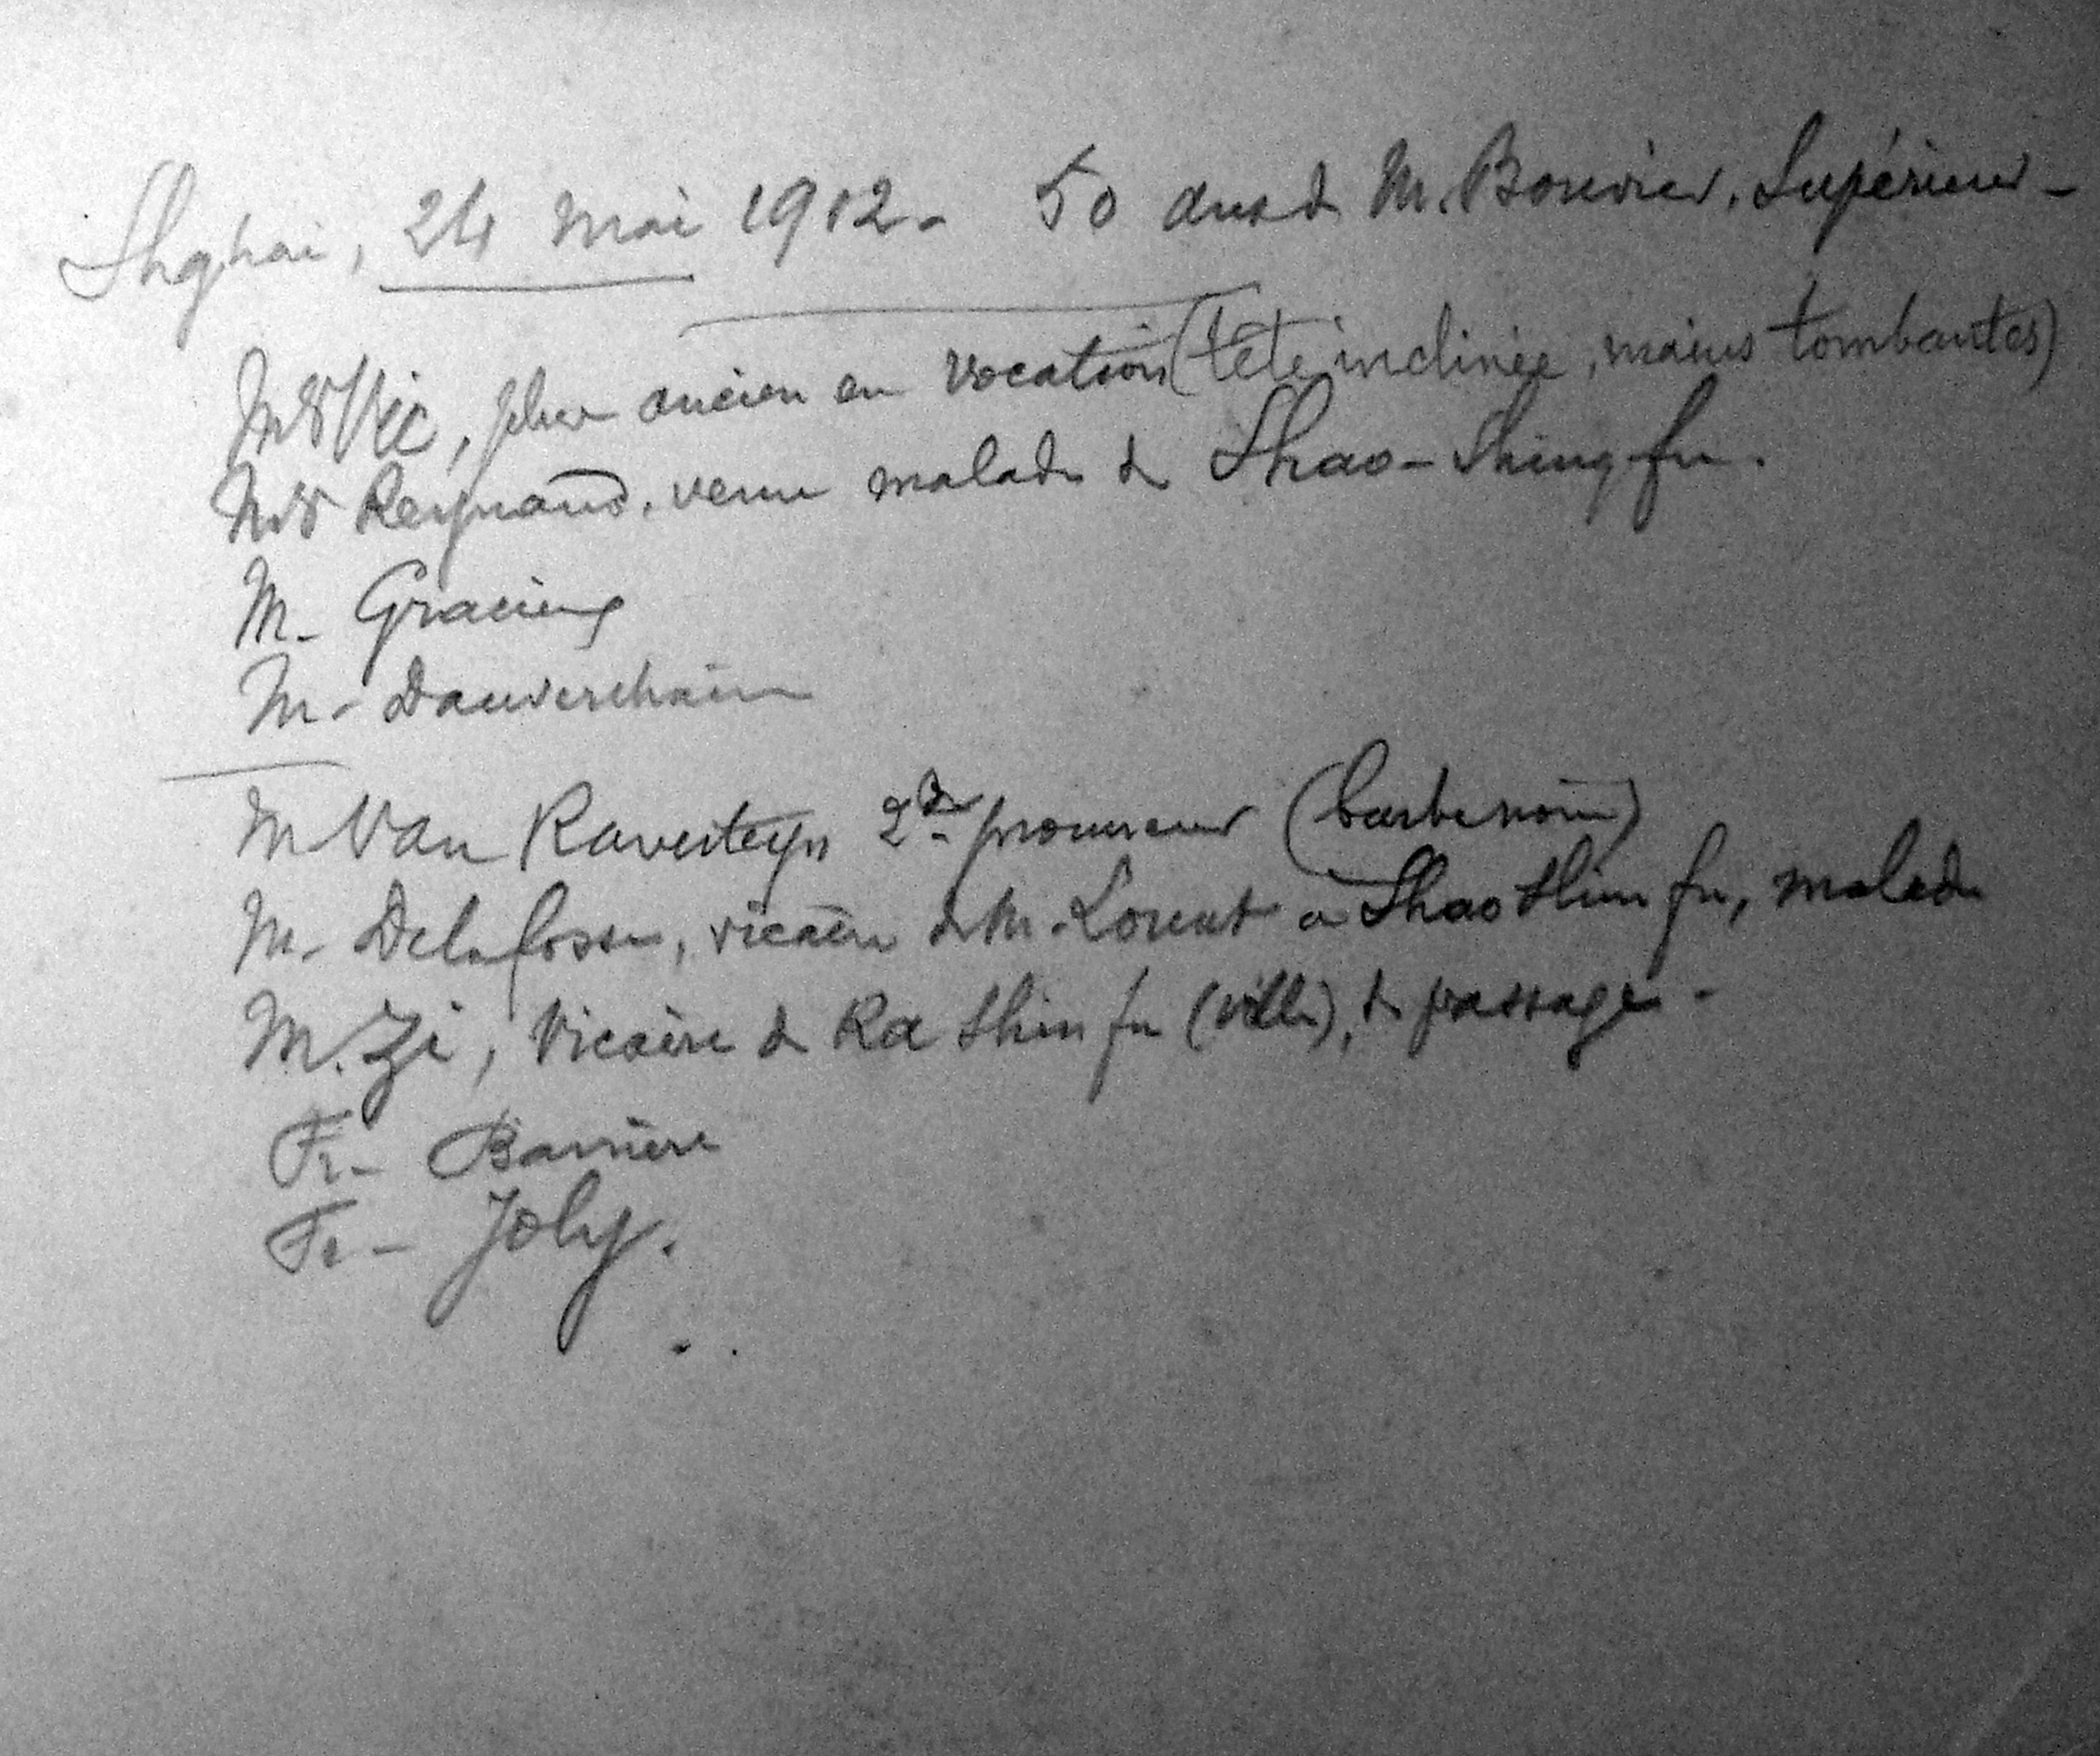 Shghai, 24 Mai 1912. 50 ans de M. Bouvier, Supérieur -
Mgr Vic, plus ancien en vocation (tête inclinée, mains tombantes)
Mgr Reynaud, venu malade de Shao-Shing fu.
M. Gracieux
M. Dauverchain
M Van Ravesteyn 2d procureur (barbe noire)
M. Delafosse, vicaire de M. Louat à Shao Shin fu, malade
M. Zi, Vicaire de Ka Shin fu (ville), de passage -
Fr - Barrière
Fr - Joly.